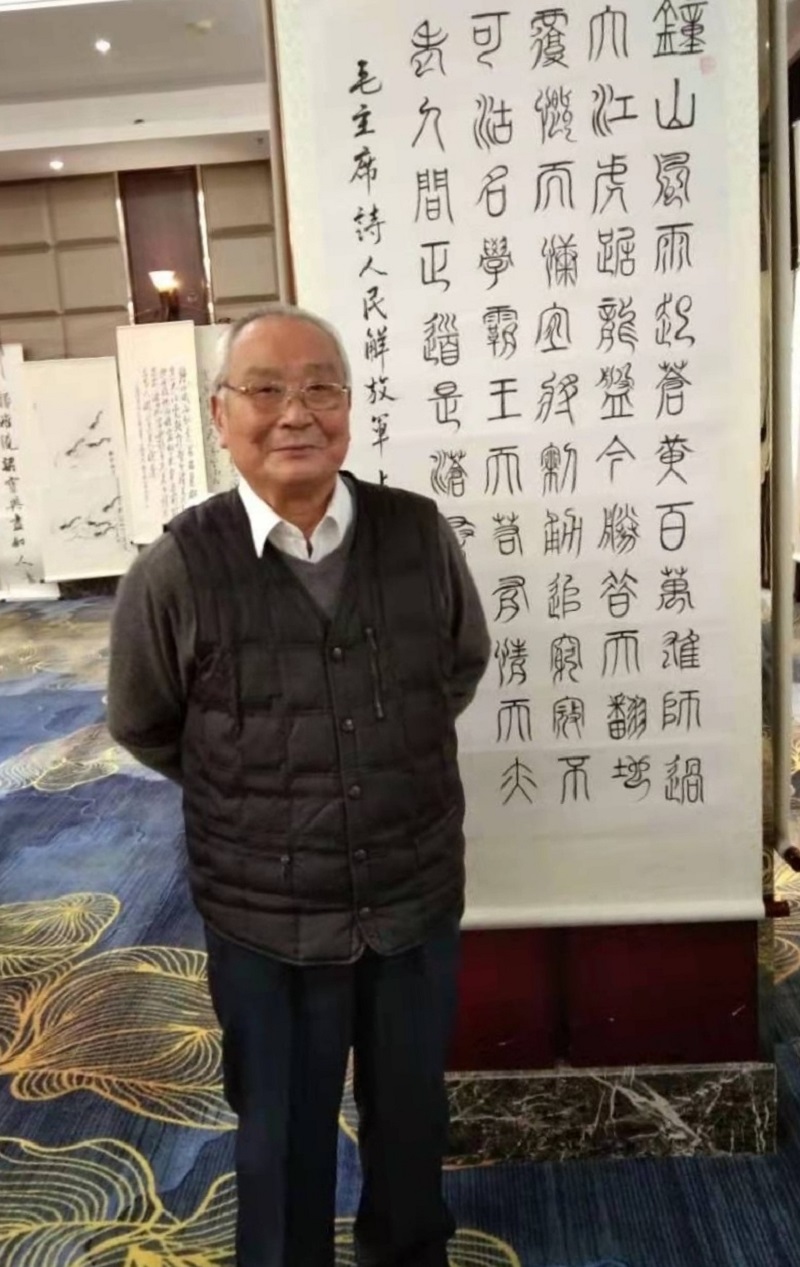 鐘山風雨起蒼黃百萬雄師過
大江虎踞龍盤今勝昔天翻地
覆慨而慷宜將剩勇追窮寇不
可沽名學霸王天若有情天亦
老人間正道是滄桑
毛主席詩人民解放軍